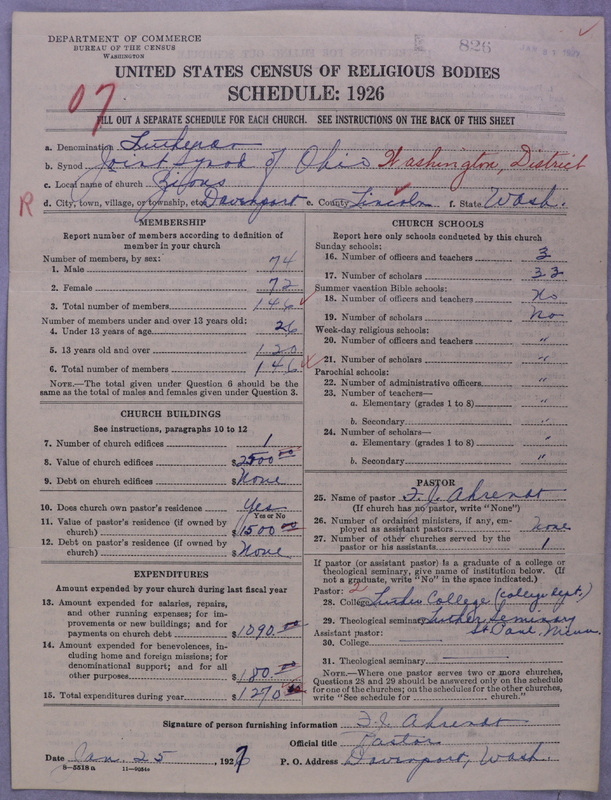 DEPARTMENT OF COMMERCE
BUREAU OF THE CENSUS
WASHINGTON
826
UNITED STATES CENSUS OF RELIGIOUS BODIES
SCHEDULE: 1926
07
FILL OUT A SEPARATE SCHEDULE FOR EACH CHURCH. SEE INSTRUCTIONS ON THE BACK OF THIS SHEET
a. Denomination Lutheran
b. Synod Joint Synod of Ohio Washington, District
c. Local name of church Zions
R
d. City, town, village, or township, etc. Davenport e. County Lincoln f. State Wash.
MEMBERSHIP
Report number of members according to definition of
member in your church
Number of members, by sex:
1. Male 74
2. Female 72
3. Total number of members 146
Number of members under and over 13 years old:
4. Under 13 years of age 26
5. 13 years old and over 120
6. Total number of members 146
NOTE.—The total given under Question 6 should be the
same as the total of males and females given under Question 3.
CHURCH BUILDINGS
See instructions, paragraphs 10 to 12
7. Number of church edifices 1
8. Value of church edifices $2500 00
9. Debt on church edifices $None
10. Does church own pastor's residence Yes
Yes or No
11. Value of pastor's residence (if owned by
church) $1500 00
12. Debt on pastor's residence (if owned by
church) $None
EXPENDITURES
Amount expended by your church during last fiscal year
13. Amount expended for salaries, repairs,
and other running expenses; for im-
provements or new building; and for
payments on church debt $1090.00
14. Amount expended for benevolences, in-
cluding home and foreign missions; for
denominational support; and for all
other purposes 180 00
15. Total expenditures during year $1270 00
CHURCH SCHOOLS
Report here only schools conducted by this church
Sunday schools:
16. Number of officers and teachers 3
17. Number of scholars 33
Summer vacation Bible schools:
18. Number of officers and teachers No
19. Number of scholars No
Week-day religious schools:
20. Number of officers and teachers "
21. Number of scholars "
Parochial schools:
22. Number of administrative officers "
23. Number of teachers—
a. Elementary (grades 1 to 8) "
b. Secondary "
24. Number of scholars—
a. Elementary (grades 1 to 8) "
b. Secondary "
PASTOR
25. Name of pastor F. J. Ahrendt
(If church has no pastor, write "None")
26. Number of ordained ministers, if any, em-
ployed as assistant pastors none
27. Number of other churches served by the
pastor or his assistants 1
If pastor (or assistant pastor) is a graduate of a college or
theological seminary, give name of institution below. (If
not a graduate, write "No" in the space indicated.)
Pastor: 2
28. College Luther College (college dept.)
29. Theological seminary Luther Seminary
Assistant pastor: St Paul Minn.
30. College
31. Theological seminary
NOTE.—Where one pastor serves two or more churches,
Questions 28 and 29 should be answered only on the schedule
for one of the churches; on the schedules for the other churches,
write "See schedule for church."
Signature of person furnishing information F. J. Ahrendt
Official title Pastor
Date Jan. 25, 1927 P. O. Address Davenport, Wash.
8—5518a